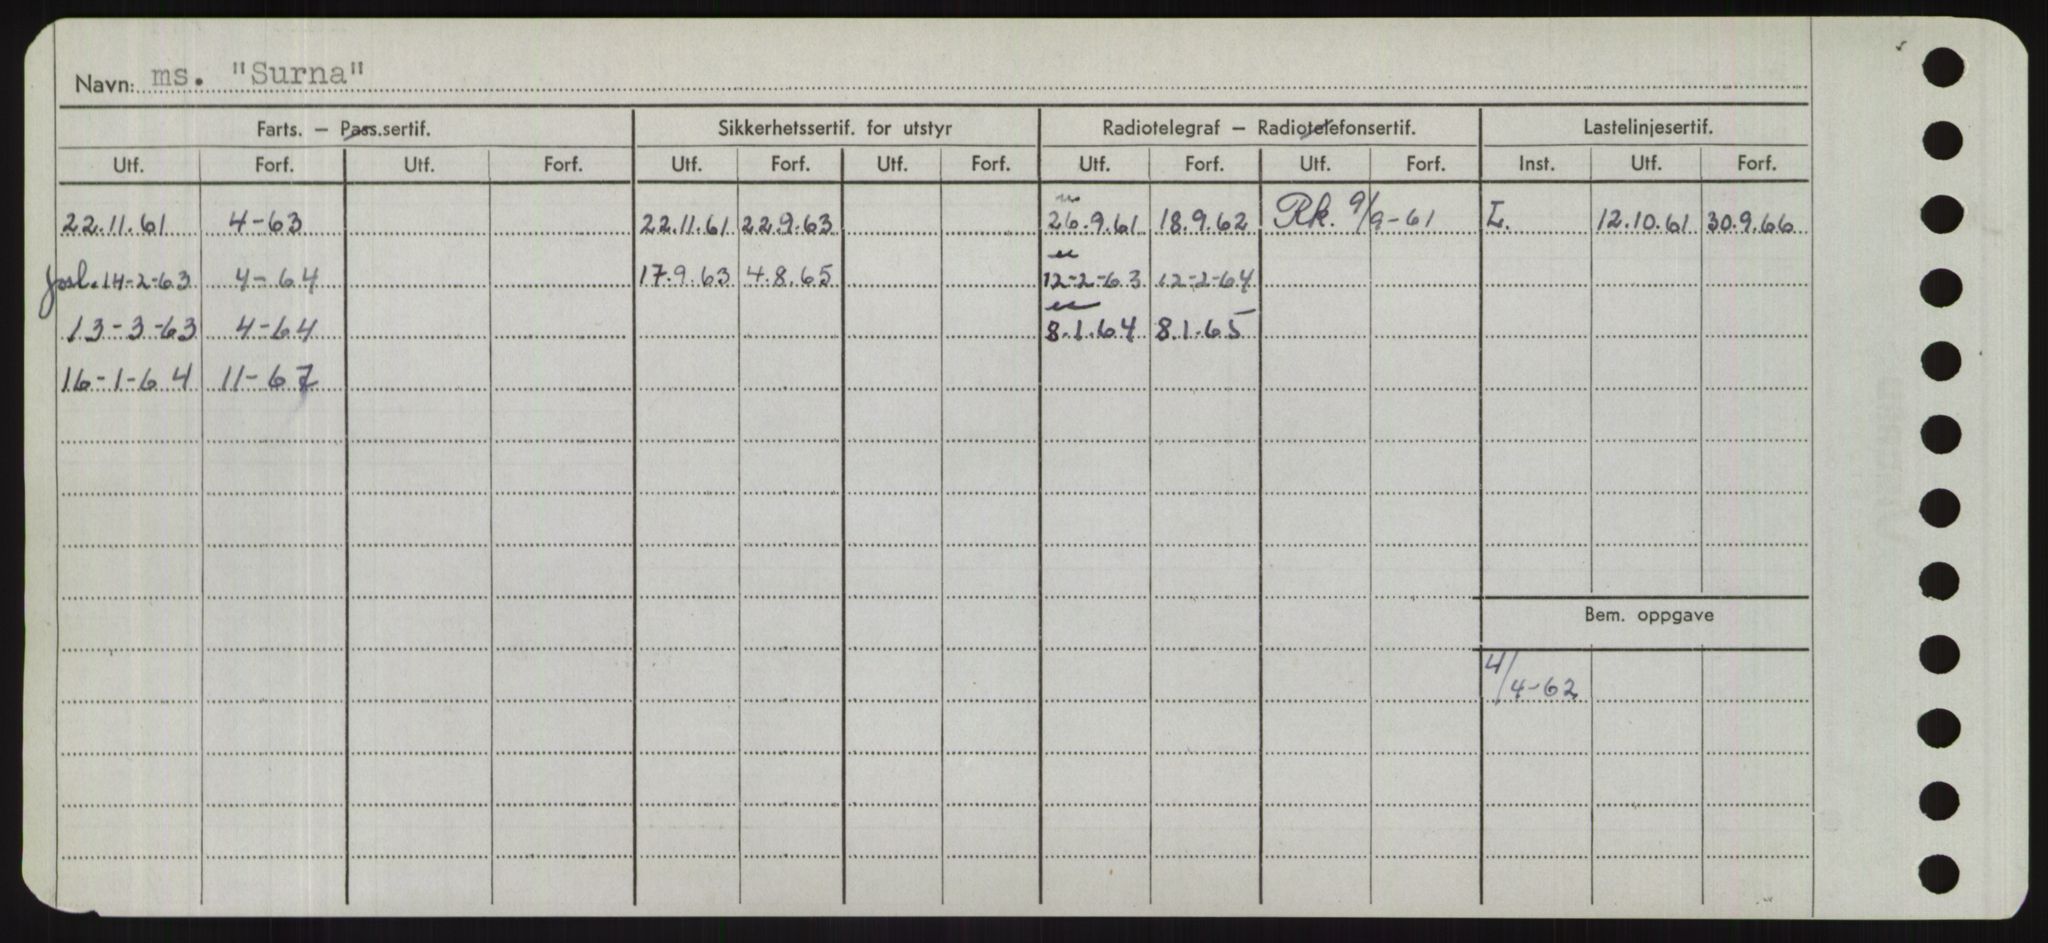 Navn: ms. "Surna"
Farts. — Pass.sertif. Sikkerhetssertif. for utstyr Radiotelegraf — Radiotelefonsertif. Lastelinjesertif.
Utf. Forf. Utf. Forf. Utf. Forf. Utf. Forf. Utf. Forf. Utf. Forf. Inst. Utf. Forf.
22.11.61 4-63 22.11.61 22.9.63 26.9.61 18.9.62 Rk. 9/9-61 L. 12.10.61 30.9.66
14-2-63 4-64 17.9.63 4.8.65 12-2-63 12-2-64
13-3-63 4-64 8.1.64 8.1.65
16-1-64 11-67
Bem. oppgave
4/4-62